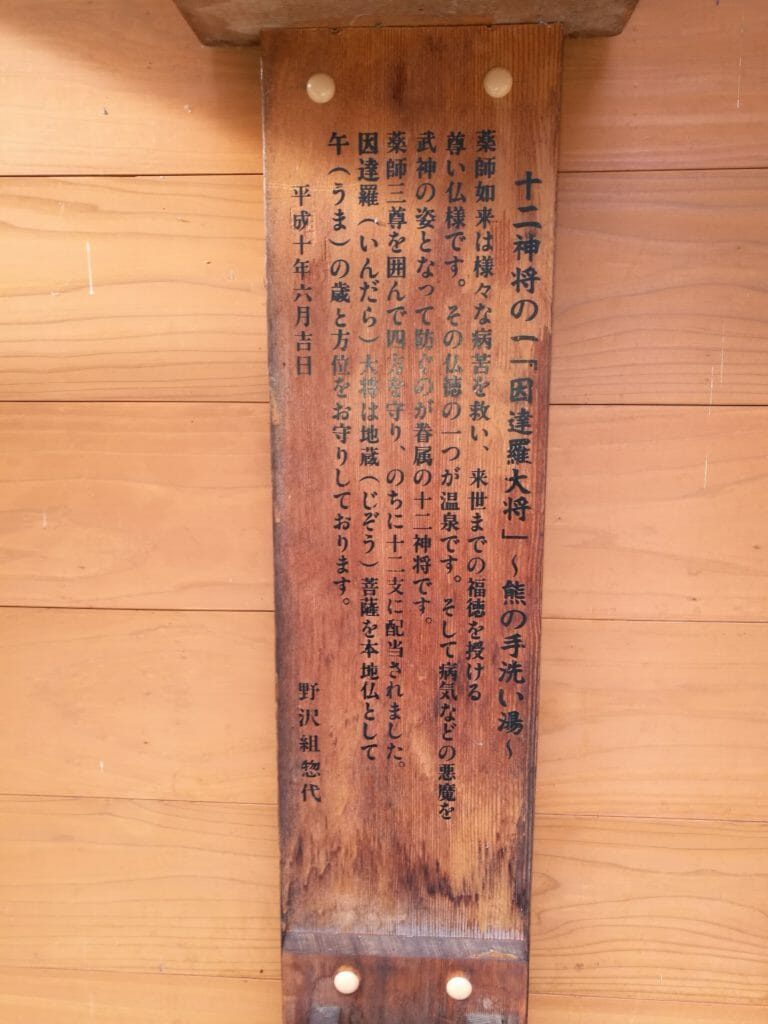 十二神将の一「因達羅大将」～熊の手洗い湯～
薬師如来は様々な病苦を救い、来世までの福徳を授ける
尊い仏様です。その仏徳の一つが温泉です。そして病気などの悪魔を
武神の姿となって防ぐのが眷属の十二神将です。
薬師三尊を囲んで四方を守り、のちに十二支に配当されました。
因達羅（いんだら）大将は地蔵（じぞう）菩薩を本地仏として
午（うま）の歳と方位をお守りしております。
平成十年六月吉日
野沢組惣代